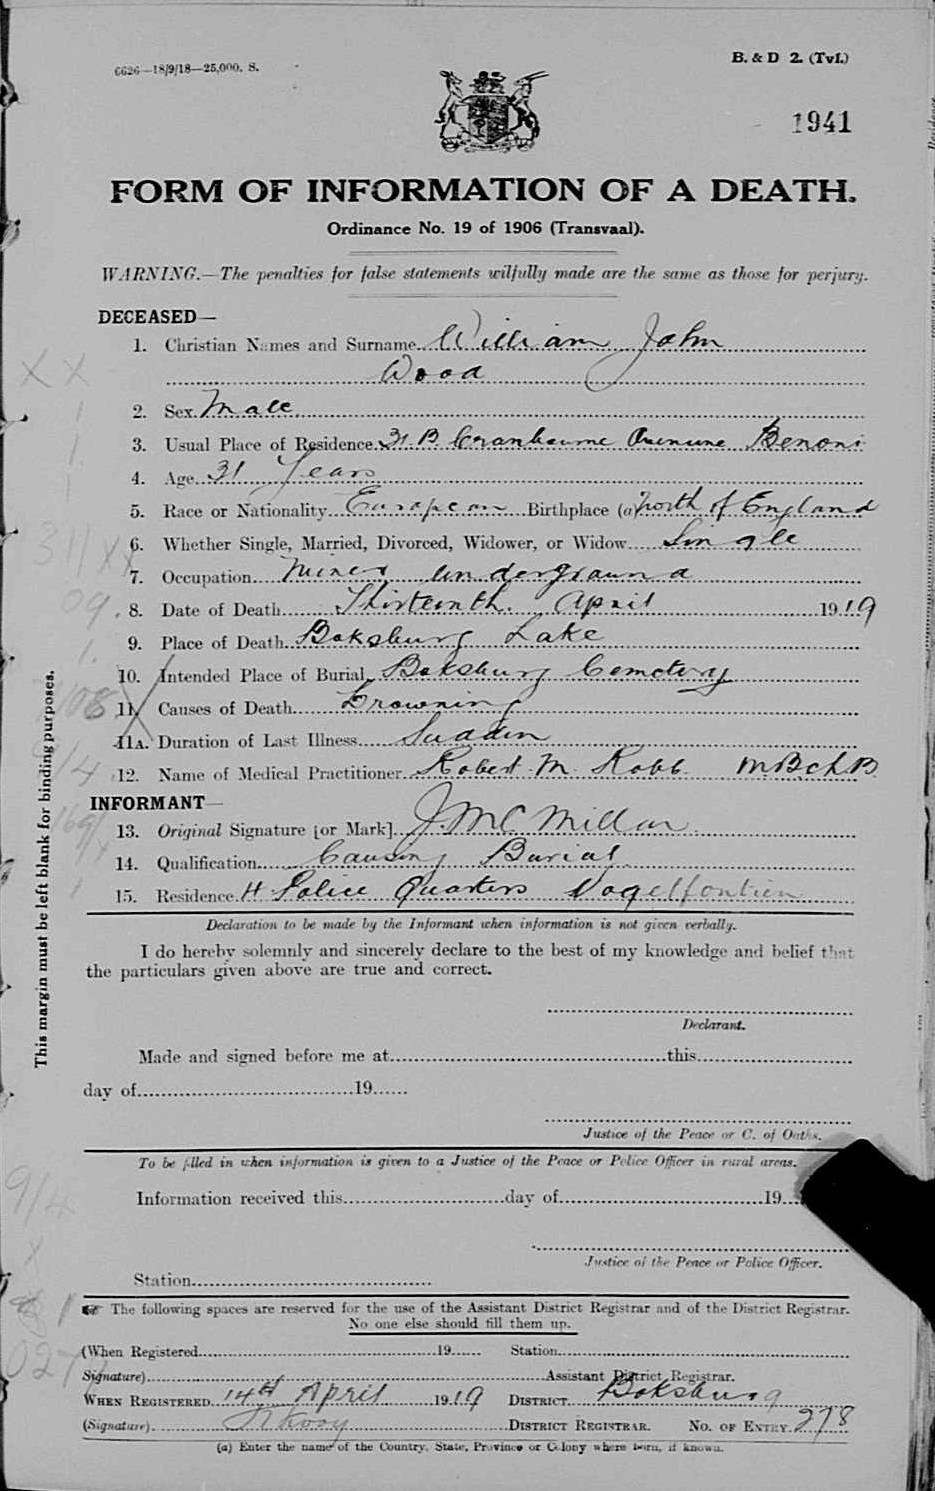 6626—18/9/18—25,000. S.
B. & D 2. (Tvl.)
1941
FORM OF INFORMATION OF A DEATH.
Ordinance No. 19 of 1906 (Transvaal).
WARNING.—The penalties for false statements wilfully made are the same as those for perjury.
DECEASED—
1. Christian Names and Surname William John
Wood
2. Sex Male
3. Usual Place of Residence 31 B Cranbourne Avenune Benoni
4. Age 31 Years
5. Race or Nationality European Birthplace (a) North of England
6. Whether Single, Married, Divorced, Widower, or Widow Single
7. Occupation Miner Underground
8. Date of Death Thirteenth April 1919
9. Place of Death Boksburg Lake
10. Intended Place of Burial Boksburg Cemetery
11. Causes of Death Drowning
11A. Duration of Last Illness Sudden
12. Name of Medical Practitioner Robert M Robb M B Ch B
INFORMANT—
13. Original Signature [or Mark] J. McMillan
14. Qualification Causing Burial
15. Residence 4 Police Quarters Vogelfontien
Declaration to be made by the Informant when information is not given verbally.
I do hereby solemnly and sincerely declare to the best of my knowledge and belief that
the particulars given above are true and correct.
Declarant.
Made and signed before me at this
day of 19
Justice of the Peace or C. of Oaths.
To be filled in when information is given to a Justice of the Peace or Police Officer in rural areas.
Information received this day of 19
Justice of the Peace or Police Officer.
Station
The following spaces are reserved for the use of the Assistant District Registrar and of the District Registrar.
No one else should fill them up.
(When Registered 19 Station
Signature) Assistant District Registrar.
WHEN REGISTERED 14th April 1919 DISTRICT Boksburg
(Signature) DISTRICT REGISTRAR. NO. OF ENTRY 278
(a) Enter the name of the Country, State, Province or Colony where born, if known.
This margin must be left blank for binding purposes.